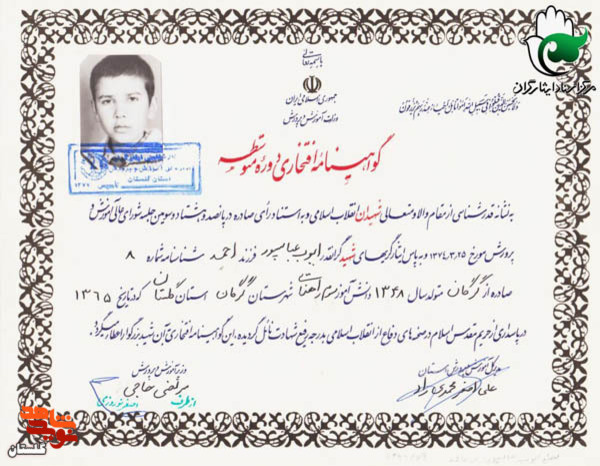 باسمه تعالی
جمهوری اسلامی ایران
وزارت آموزش و پرورش
مرکز اسناد ایثارگران
گواهینامه افتخاری دوره متوسطه
به نشانه قدرشناسی از مقام والا و متعالی شهیدان انقلاب اسلامی و به استناد رأی صادره در پانصد و هشتاد و سومین جلسه شورای عالی آموزش و
پرورش مورخ ۱۳۷۴/۳/۲۵ و به پاس ایثارگریهای شهید گرانقدر ایوب عباسپور فرزند احمد شناسنامه شماره ۸
صادره از گرگان متولد سال ۱۳۴۸ دانش آموز شهرستان گرگان استان گلستان که در تاریخ ۱۳۶۵
در پاسداری از حریم مقدس اسلام در صحنه های دفاع از انقلاب اسلامی به درجه رفیع شهادت نائل گردیده، این گواهینامه افتخاری به آن شهید بزرگوار اعطا میگردد.
وزیر آموزش و پرورش
مرتضی حاجی
از طرف
مدیر کل آموزش و پرورش استان
علی اصغر محمدی راد
استان گلستان
گلستان